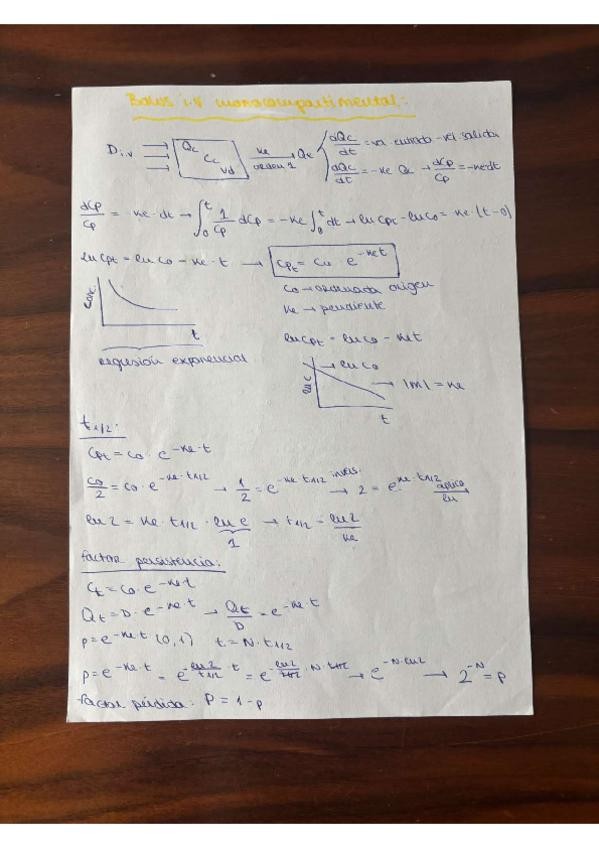 Bolus i.v monocompartimental:
D i.v → Qc Cc Vd → ke orden 1 → Qe
dQc/dt = vel. entrada - vel salida
dQc/dt = -ke Qc → dCp/Cp = -ke·dt
dCp/Cp = -ke · dt → ∫₀ᵗ 1/Cp dCp = -ke ∫₀ᵗ dt → ln Cpt - ln Co = -ke · (t-0)
ln Cpt = ln Co - ke · t → Cpt = Co · e^-ket
Co → ordenada origen
ke → pendiente
Conc. t
regresión exponencial
ln Cpt = ln Co - ket
ln C → ln Co → |m| = ke t
t1/2:
Cpt = Co · e^-ke·t
Co/2 = Co · e^-ke·t1/2 → 1/2 = e^-ke·t1/2 invers. → 2 = e^ke·t1/2 aplico ln
ln 2 = ke · t1/2 · ln e → t1/2 = ln2/ke
1
factor persistencia:
Ct = Co · e^-ke·t
Qt = D · e^-ke·t → Qt/D = e^-ke·t
p = e^-ke·t (0,1) t = N · t1/2
p = e^-ke·t = e^-ln2/t1/2 · t = e^-ln2/t1/2 · N · t1/2 → e^-N·ln2 → 2^-N = p
factor pérdida: P = 1-p